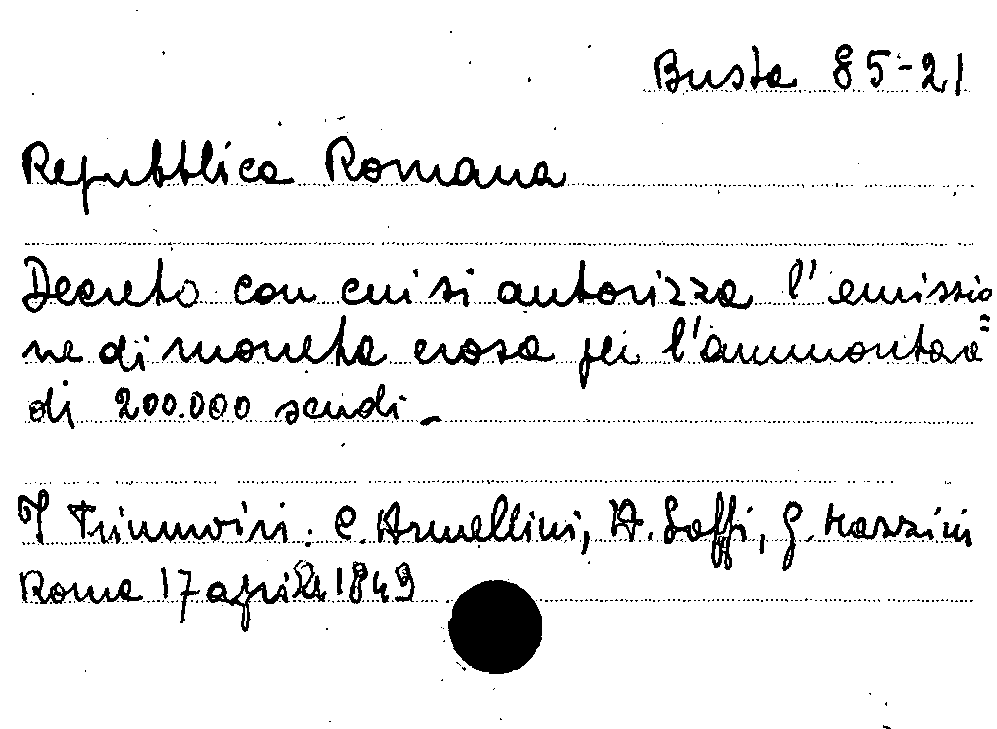 Busta 85-21
Repubblica Romana
Decreto con cui si autorizza l'emissio
ne di moneta erosa per l'ammontare
di 200.000 scudi.
I Triumviri: C. Armellini, A. Saffi, G. Mazzini
Roma 17 aprile 1849